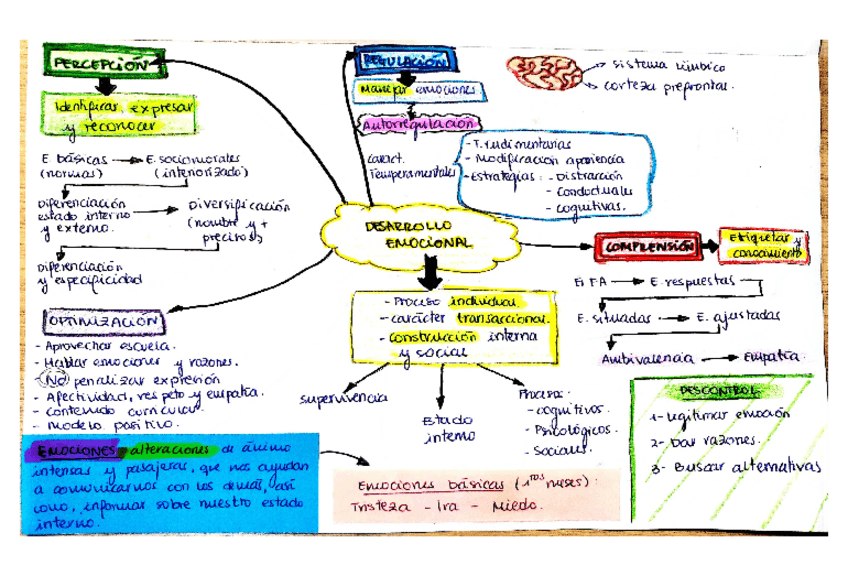 PERCEPCIÓN
Identificar, expresar
y reconocer
E. básicas → E. sociomorales
(normas) (interiorizado)
Diferenciación
estado interno
y externo.
Diversificación
(nombre y +
precisos)
Diferenciación
y especificidad
OPTIMIZACIÓN
- Aprovechar escuela.
- Hablar emociones y razones.
- No penalizar expresión
- Afectividad, respeto y empatía.
- Contenido curricular.
- Modelo positivo.
EMOCIONES: alteraciones de ánimo
intensas y pasajeras, que nos ayudan
a comunicarnos con los demás, así
como, informar sobre nuestro estado
interno.
REGULACIÓN
Manejar emociones
Autorregulación
Caract.
Temperamentales
- T. rudimentarias
- Modificación apariencia
- Estrategias: - Distracción
- Conductuales
- Cognitivas.
sistema límbico
corteza prefrontal.
DESARROLLO
EMOCIONAL
- Proceso individual.
- carácter transaccional.
- construcción interna
y social
Supervivencia
Estado
interno
Proceso:
- cognitivos.
- Psicológicos.
- Sociales.
Emociones básicas (1ros meses):
Tristeza - Ira - Miedo.
COMPRENSIÓN
Etiquetar y
conocimiento
E. respuestas
E. situadas → E. ajustadas
Ambivalencia → Empatía.
DESCONTROL
1- Legitimar emoción
2- Dar razones.
3- Buscar alternativas